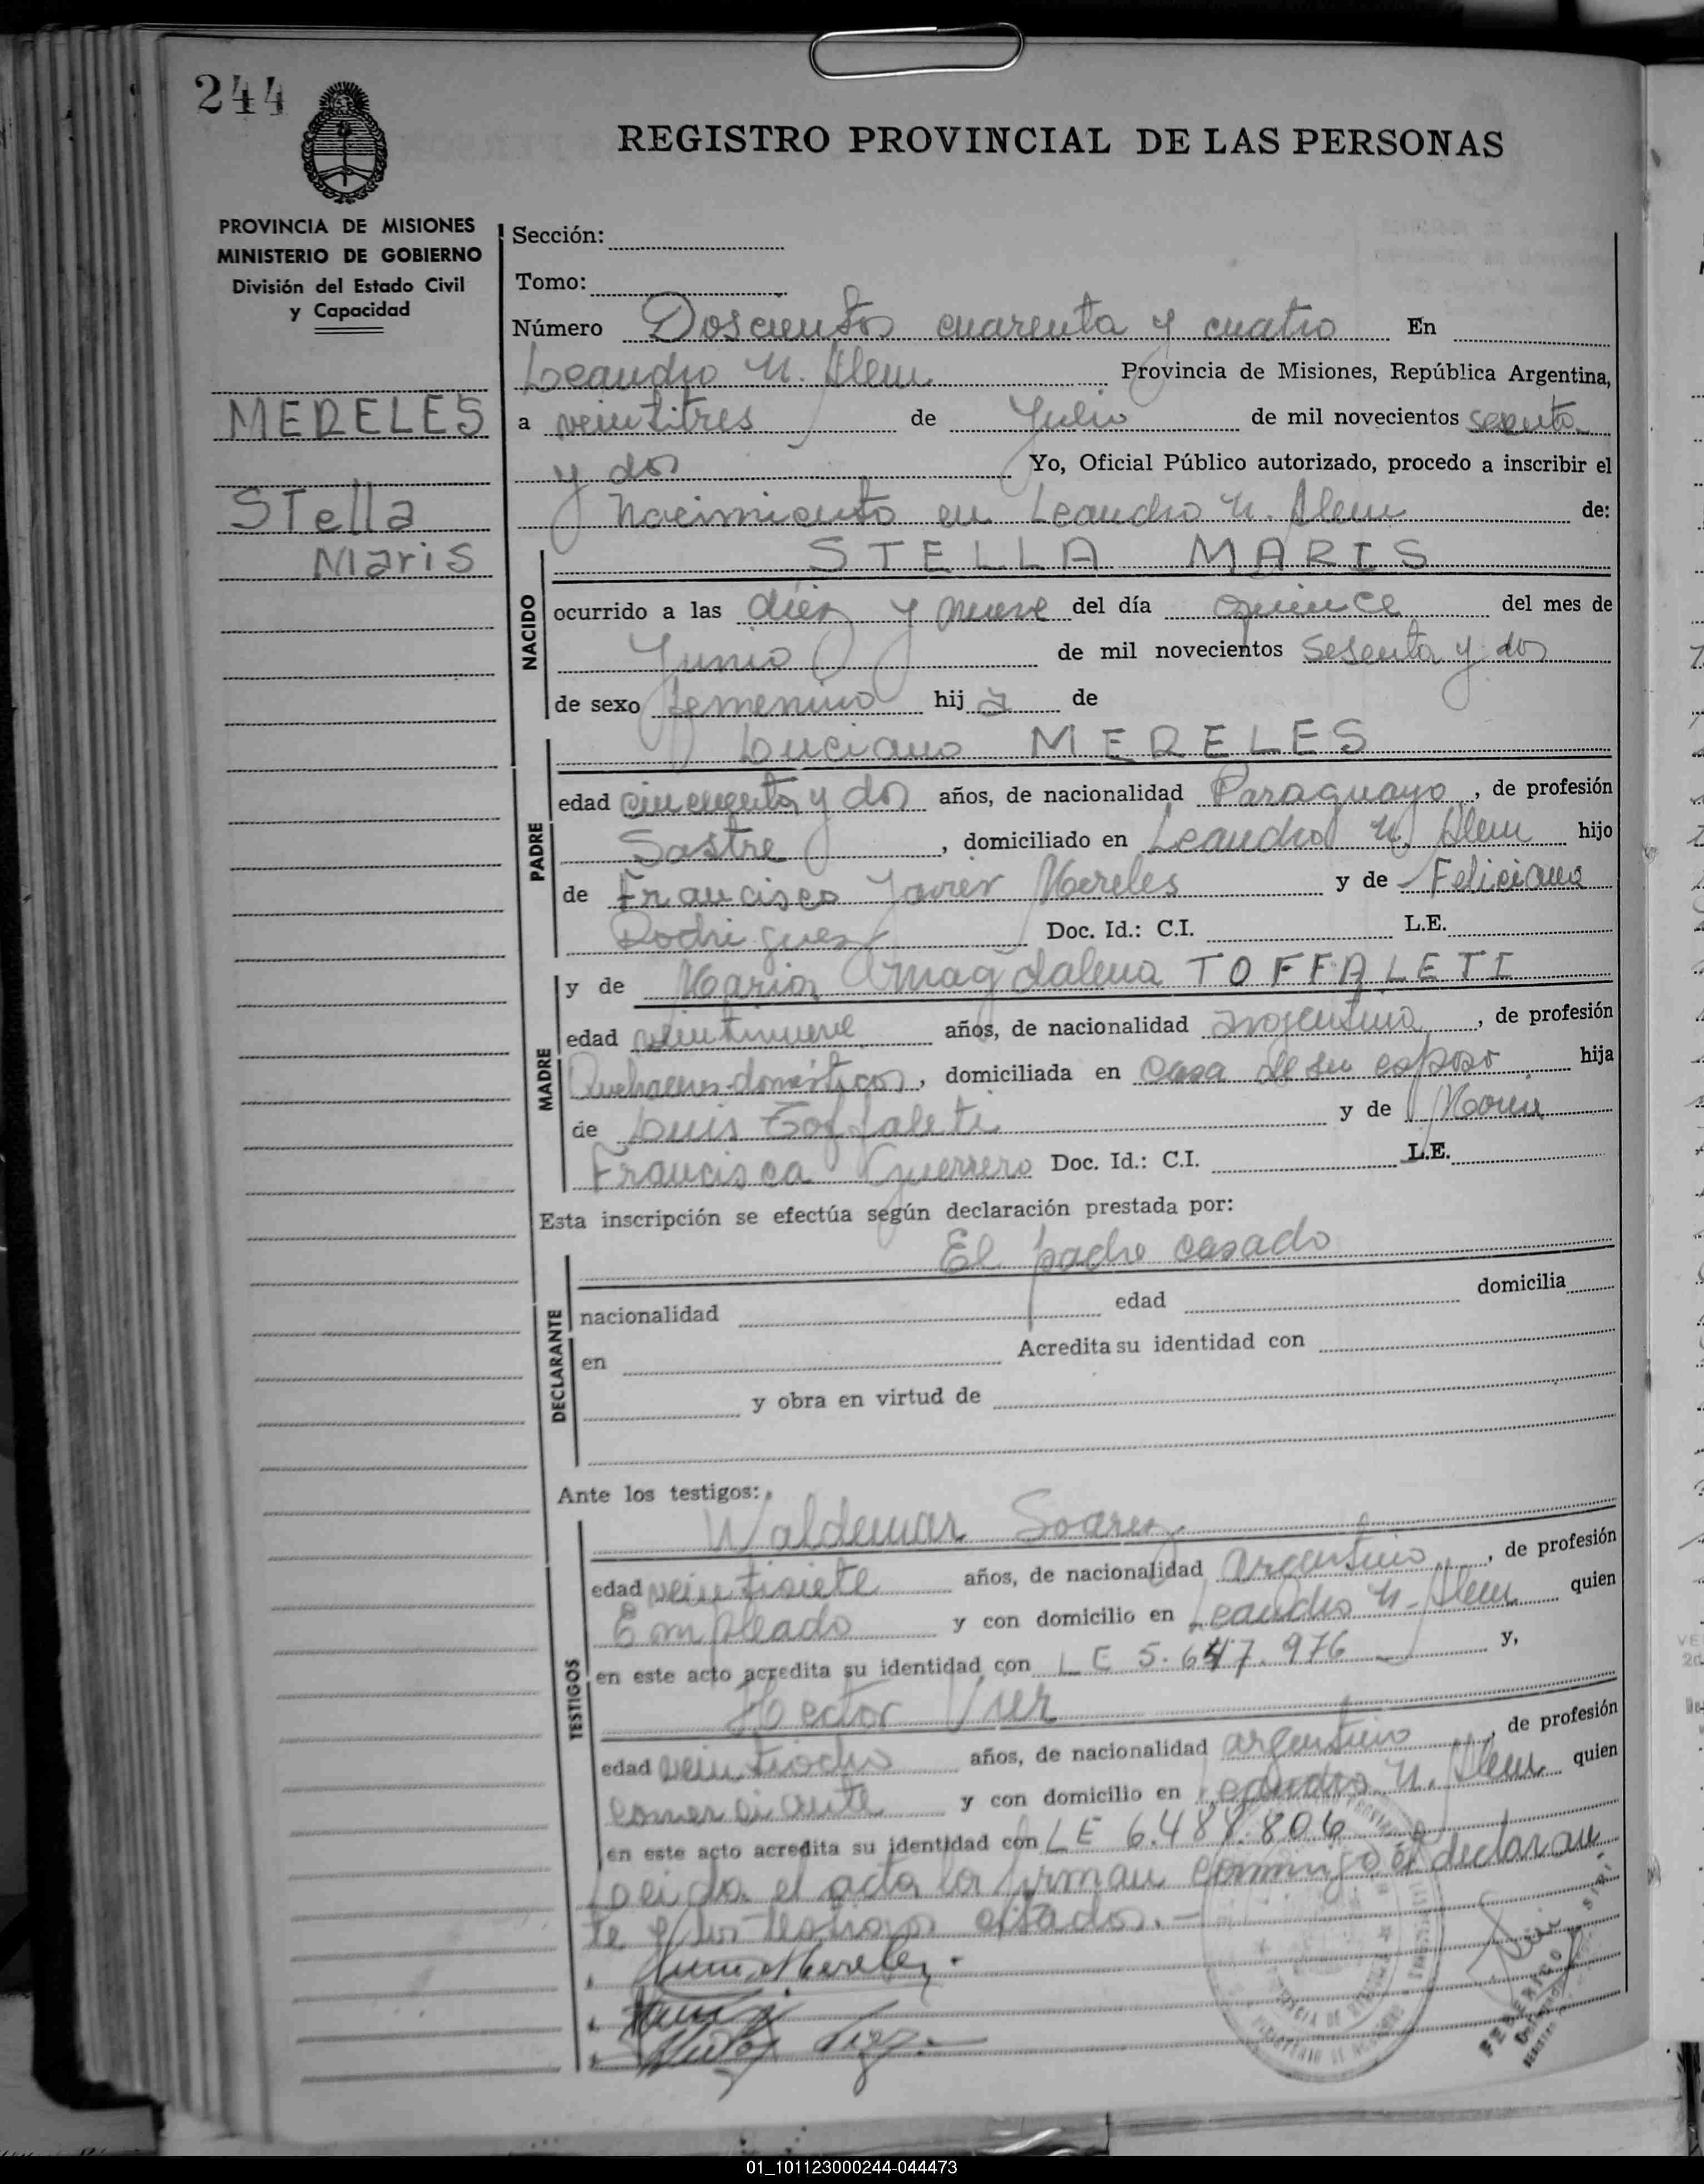 244
REGISTRO PROVINCIAL DE LAS PERSONAS
PROVINCIA DE MISIONES
MINISTERIO DE GOBIERNO
División del Estado Civil
y Capacidad
MERELES
STella
Maris
Sección:
Tomo:
Número Doscientos cuarenta y cuatro En
Leandro N. Alem Provincia de Misiones, República Argentina,
a veintitres de Julio de mil novecientos sesenta
y dos Yo, Oficial Público autorizado, procedo a inscribir el
Nacimiento en Leandro N. Alem de:
NACIDO
STELLA MARIS
ocurrido a las diez y nueve del día quince del mes de
Junio de mil novecientos sesenta y dos
de sexo femenino hij a de
PADRE
Luciano MERELES
edad cincuenta y dos años, de nacionalidad Paraguayo, de profesión
Sastre, domiciliado en Leandro N. Alem hijo
de Francisco Javier Mereles y de Feliciana
Rodriguez Doc. Id.: C.I. L.E.
MADRE
y de Maria Magdalena TOFFALETI
edad veintinueve años, de nacionalidad argentina, de profesión
Quehaceres domésticos, domiciliada en casa de su esposo hija
de Luis Toffaleti y de Maria
Francisca Guerrero Doc. Id.: C.I. L.E.
Esta inscripción se efectúa según declaración prestada por:
DECLARANTE
El padre casado
nacionalidad edad domicilia
en Acredita su identidad con
y obra en virtud de
Ante los testigos:
TESTIGOS
Waldemar Soarez
edad veintisiete años, de nacionalidad argentino, de profesión
Empleado y con domicilio en Leandro N. Alem quien
en este acto acredita su identidad con LE 5.647.976 y,
Hector
edad veintiocho años, de nacionalidad argentino, de profesión
comerciante y con domicilio en Leandro N. Alem quien
en este acto acredita su identidad con LE 6.488.806
Leida el acta la firman conmigo el declaran
te y los testigos citados.-
Mereles
FEDERICO
01_101123000244-044473